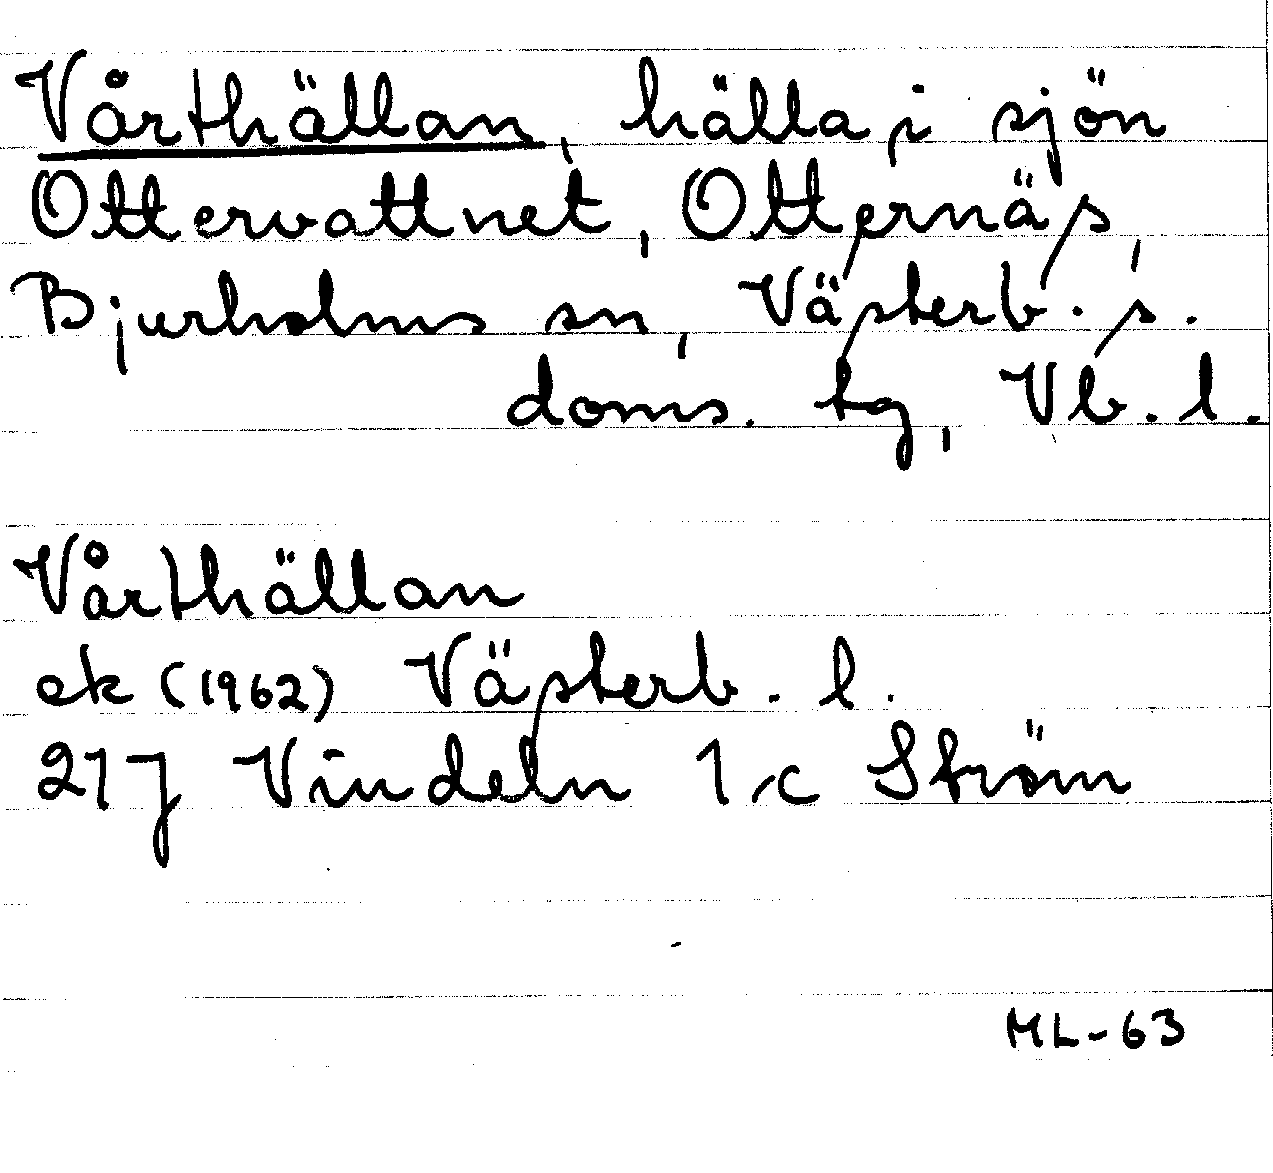 Vårthällan, hälla i sjön
Ottervattnet, Otternäs,
Bjurholms sn, Västerb. s.
doms. tg, Vb. l.
Vårthällan
ek (1962) Västerb. l.
21J Vindeln 1c Ström
ML-63